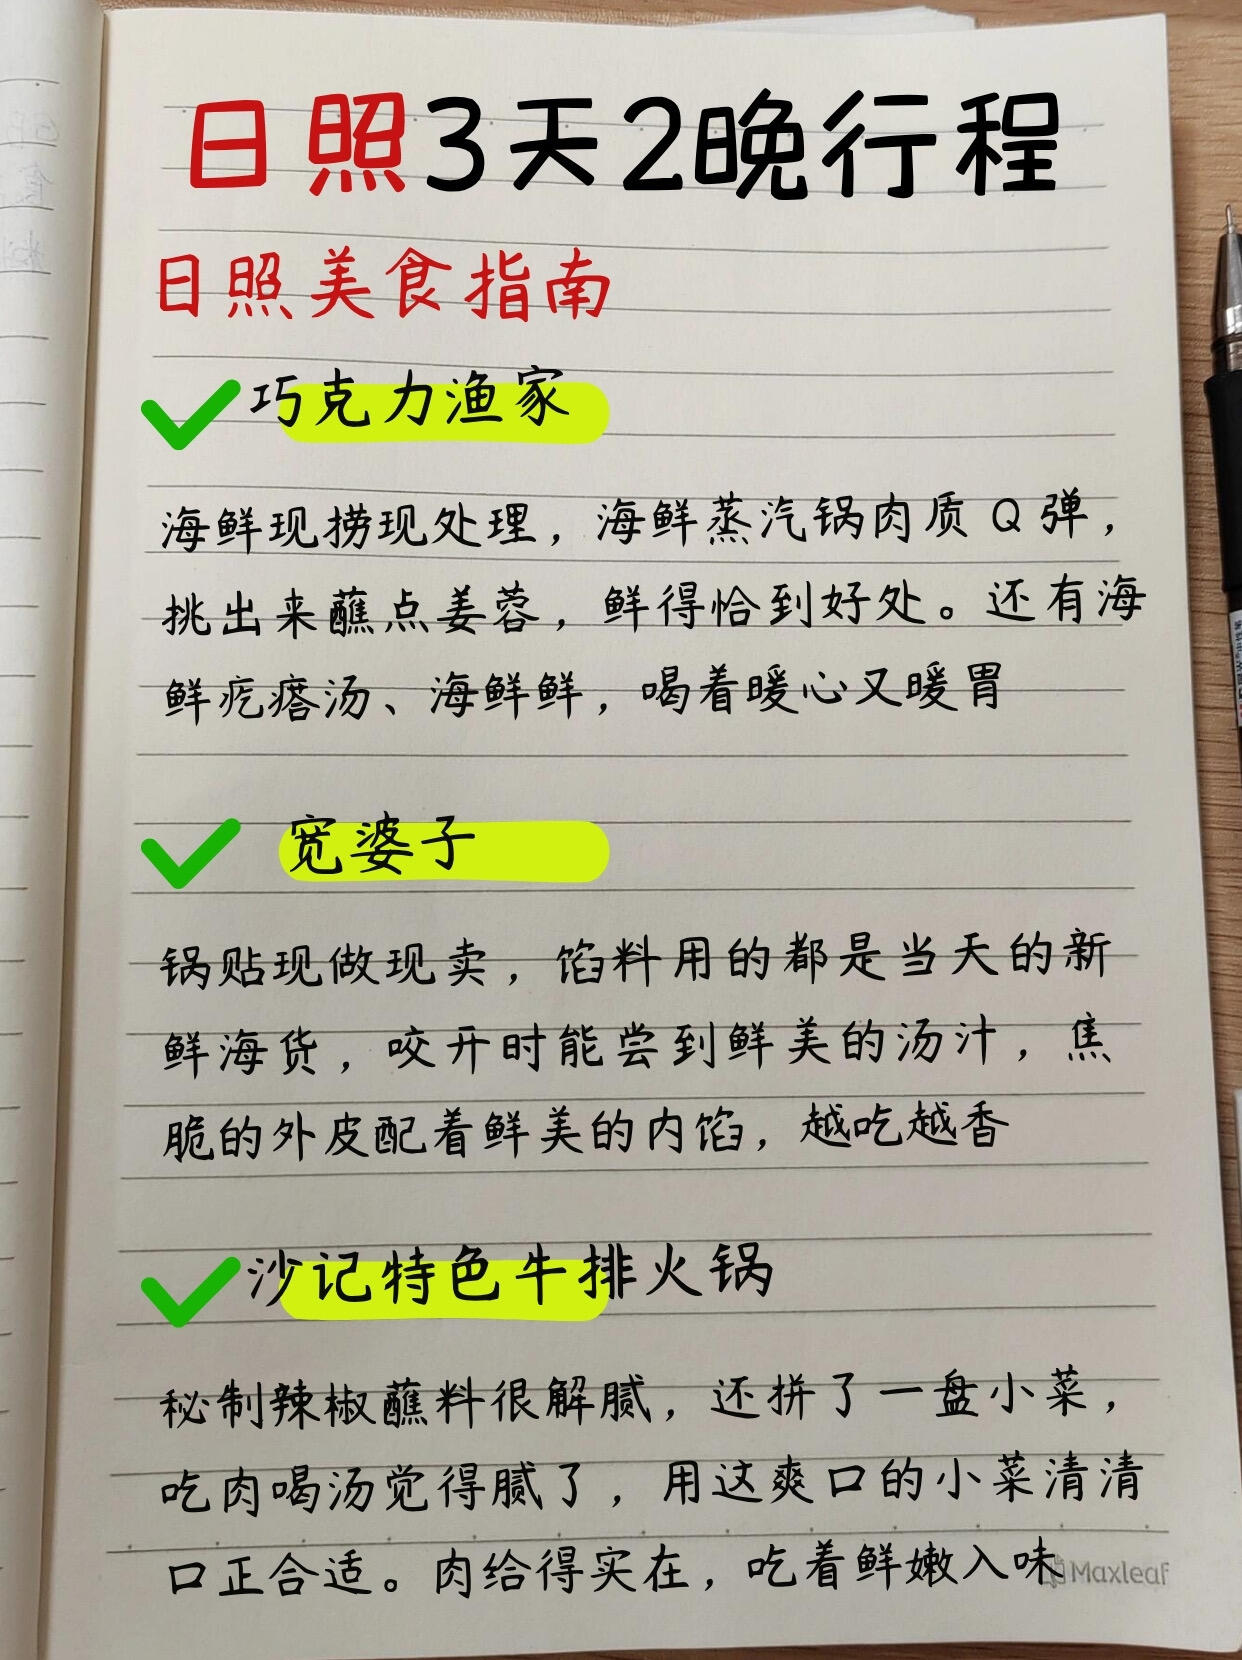 日照3天2晚行程
日照美食指南
巧克力渔家
海鲜现捞现处理，海鲜蒸汽锅肉质Q弹，
挑出来蘸点姜蓉，鲜得恰到好处。还有海
鲜疙瘩汤、海鲜鲜，喝着暖心又暖胃
宽婆子
锅贴现做现卖，馅料用的都是当天的新
鲜海货，咬开时能尝到鲜美的汤汁，焦
脆的外皮配着鲜美的内馅，越吃越香
沙记特色牛排火锅
秘制辣椒蘸料很解腻，还拼了一盘小菜，
吃肉喝汤觉得腻了，用这爽口的小菜清清
口正合适。肉给得实在，吃着鲜嫩入味
Maxleaf